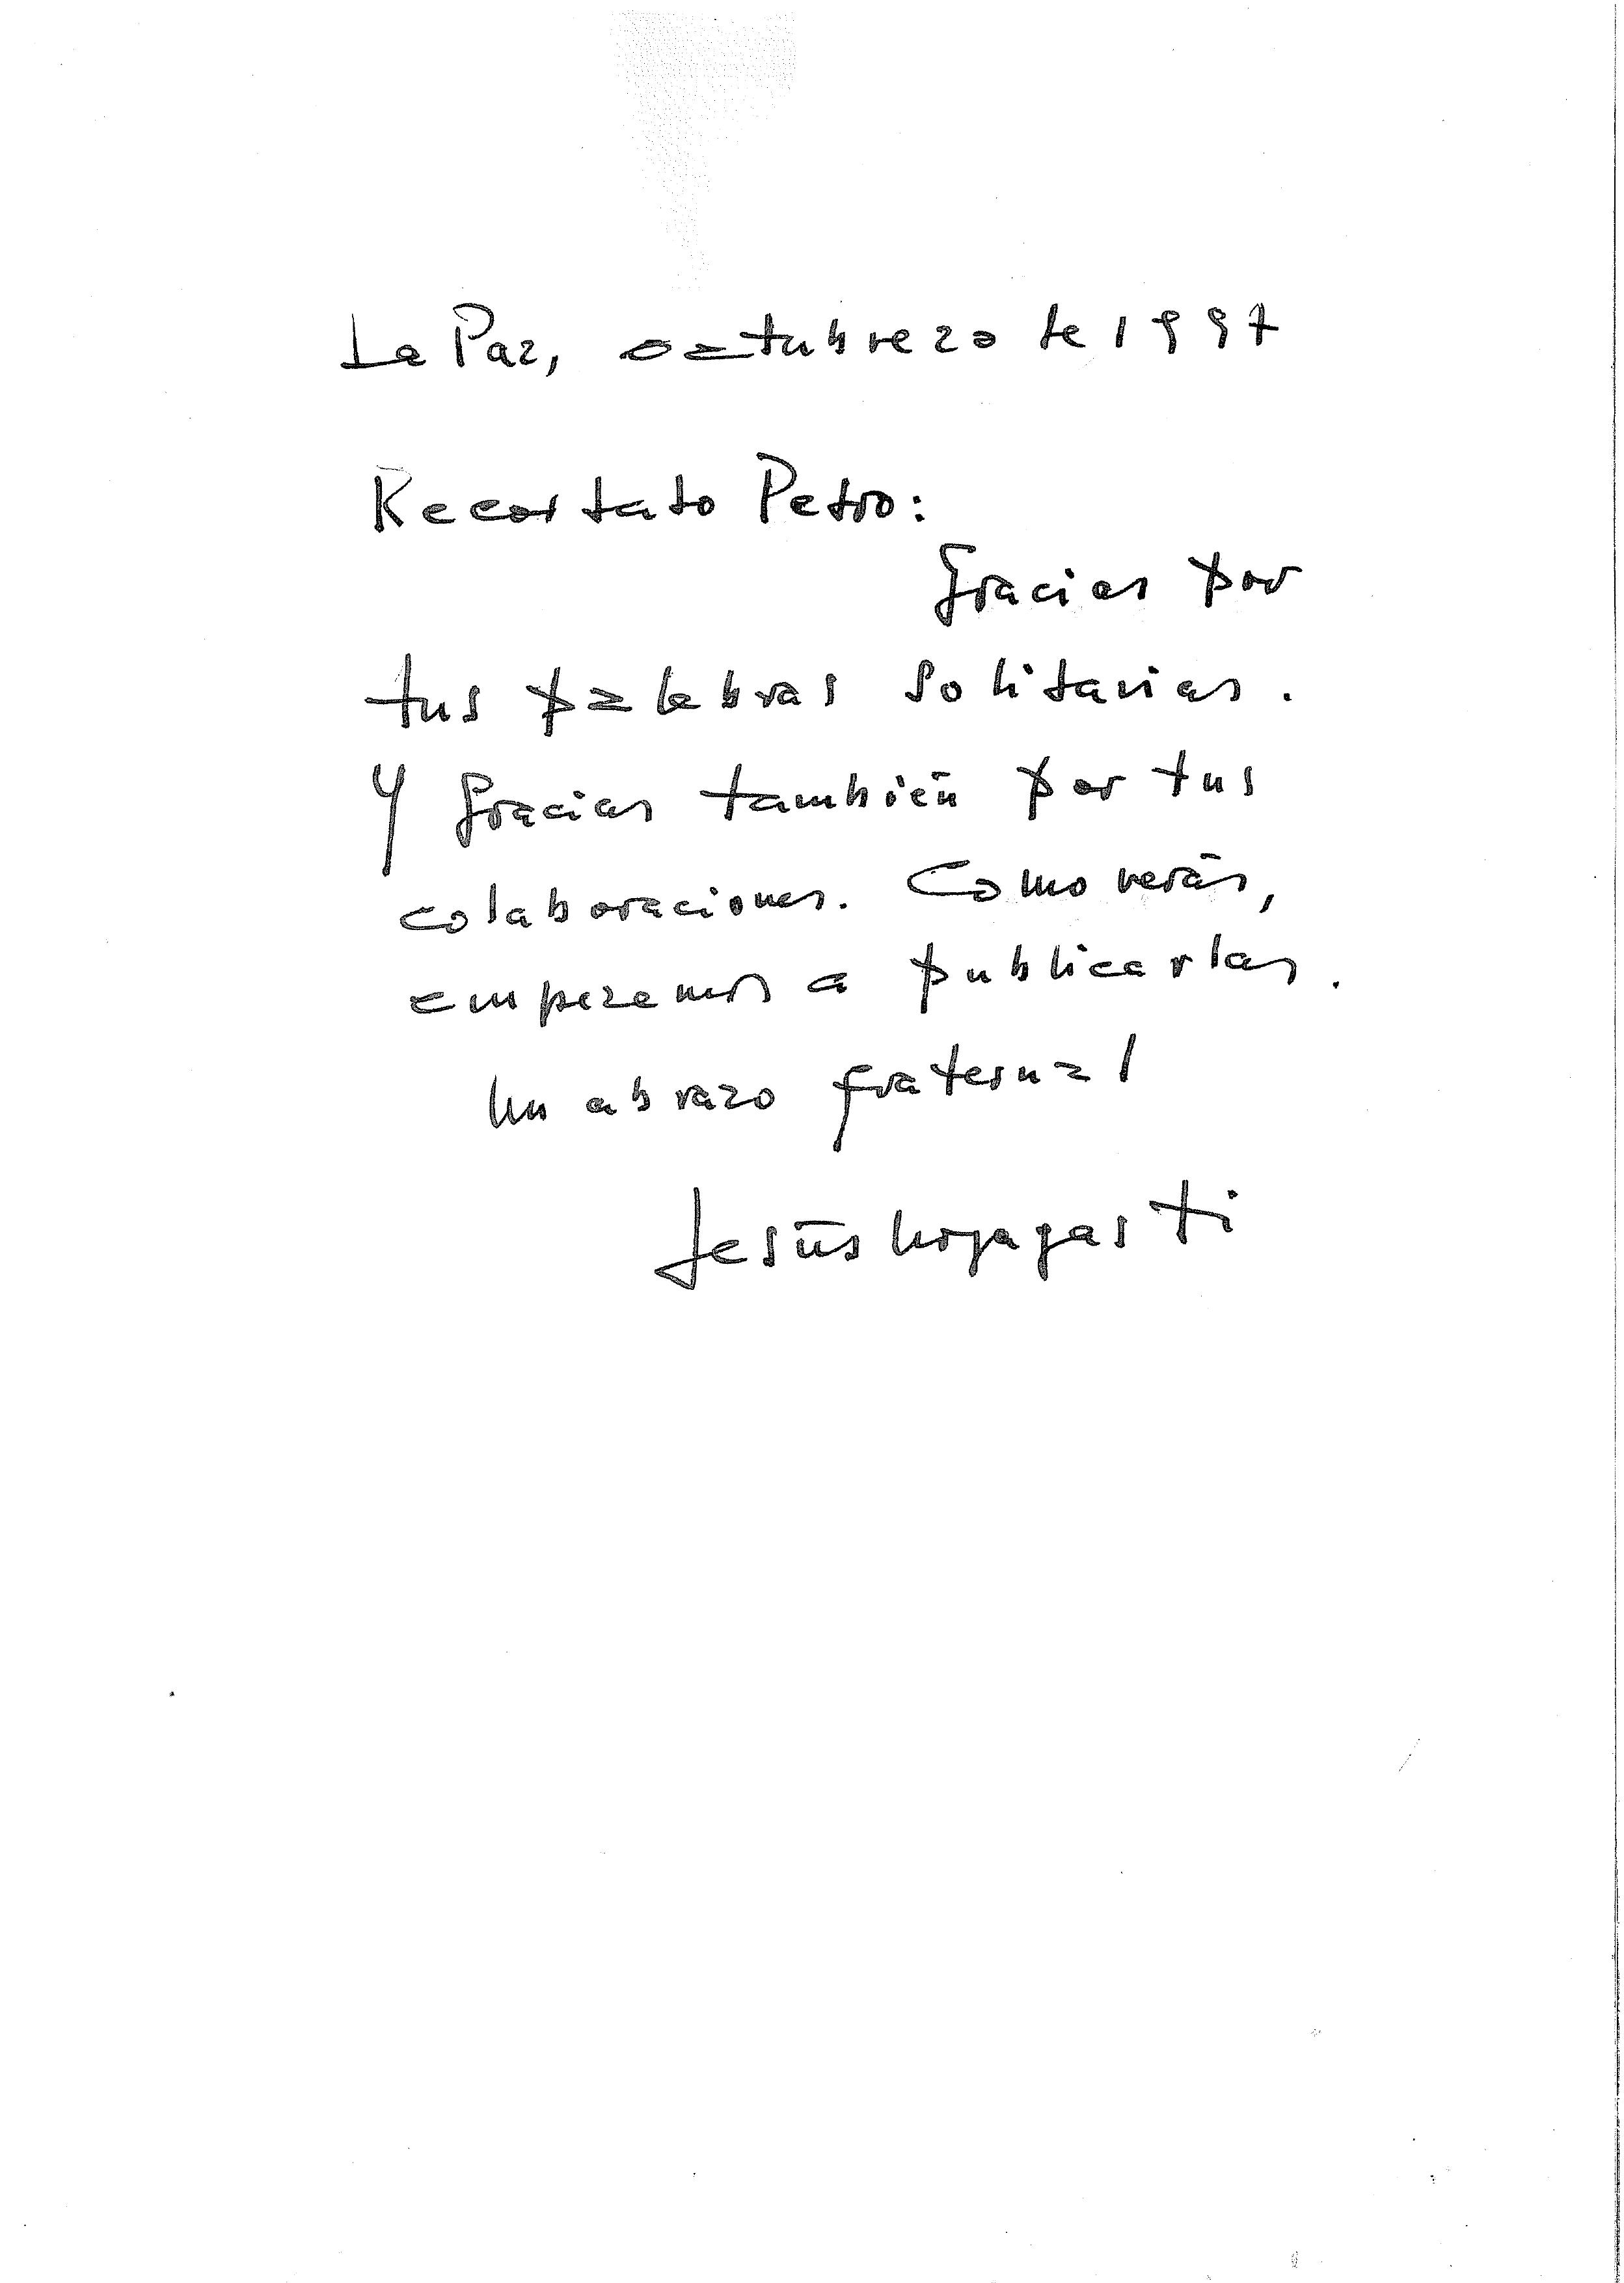 La Paz, octubre 20 de 1997
Recordado Pedro:
Gracias por
tus palabras solidarias.
Y gracias también por tus
colaboraciones. Como verás,
empezamos a publicarlas.
Un abrazo fraternal
Jesús Urzagasti